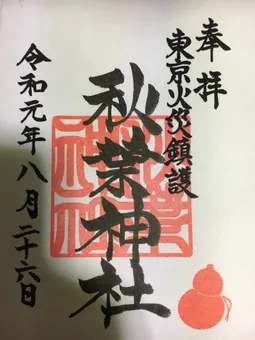 奉拝
東京火災鎮護
秋葉神社
令和元年八月二十六日